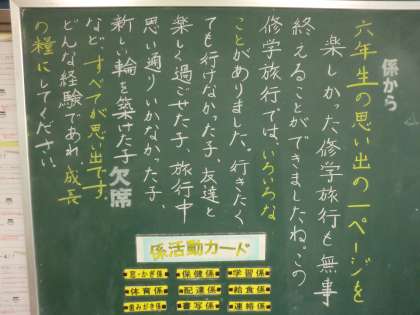 係から
六年生の思い出の一ページを
楽しかった修学旅行も無事
終えることができましたね。この
修学旅行では、いろいろな
ことがありました。行きたく
ても行けなかった子、友達と
楽しく過ごせた子、旅行中
思い通りいかなかった子、
新しい輪を築けた子
など、すべてが思い出です。
どんな経験であれ、成長
の糧にしてください。
欠席
係活動カード
窓・かぎ係
保健係
学習係
体育係
配達係
給食係
歯みがき係
書写係
連絡係